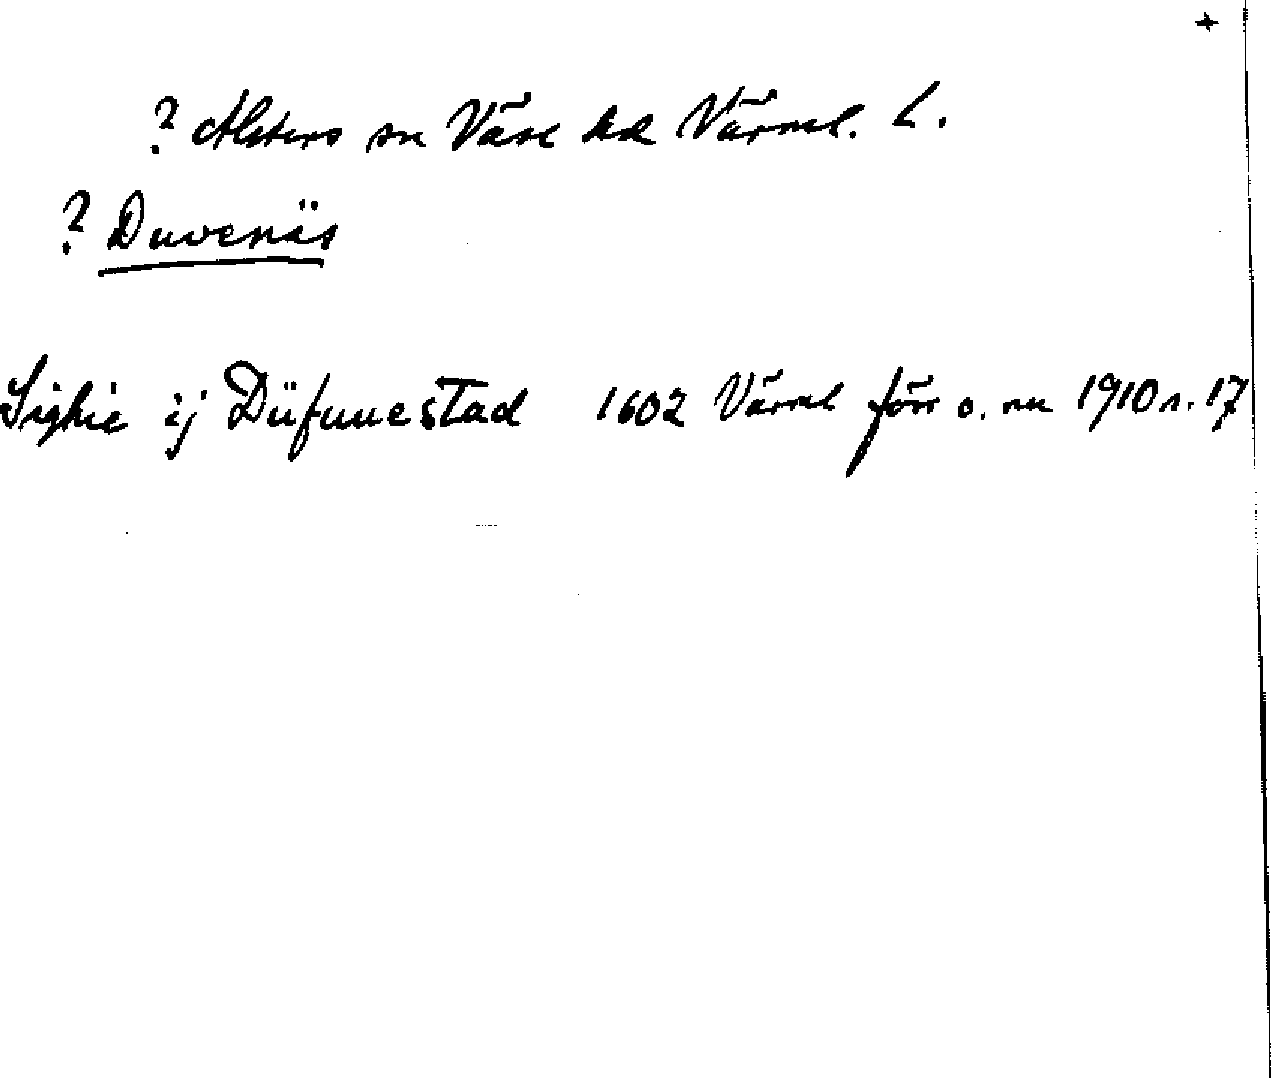 +
? Alsters sn Väse hd Värml. L.
? Duvenäs
Sighie ij Düfuuestad 1602 Värml förr o. nu 1910 s. 17